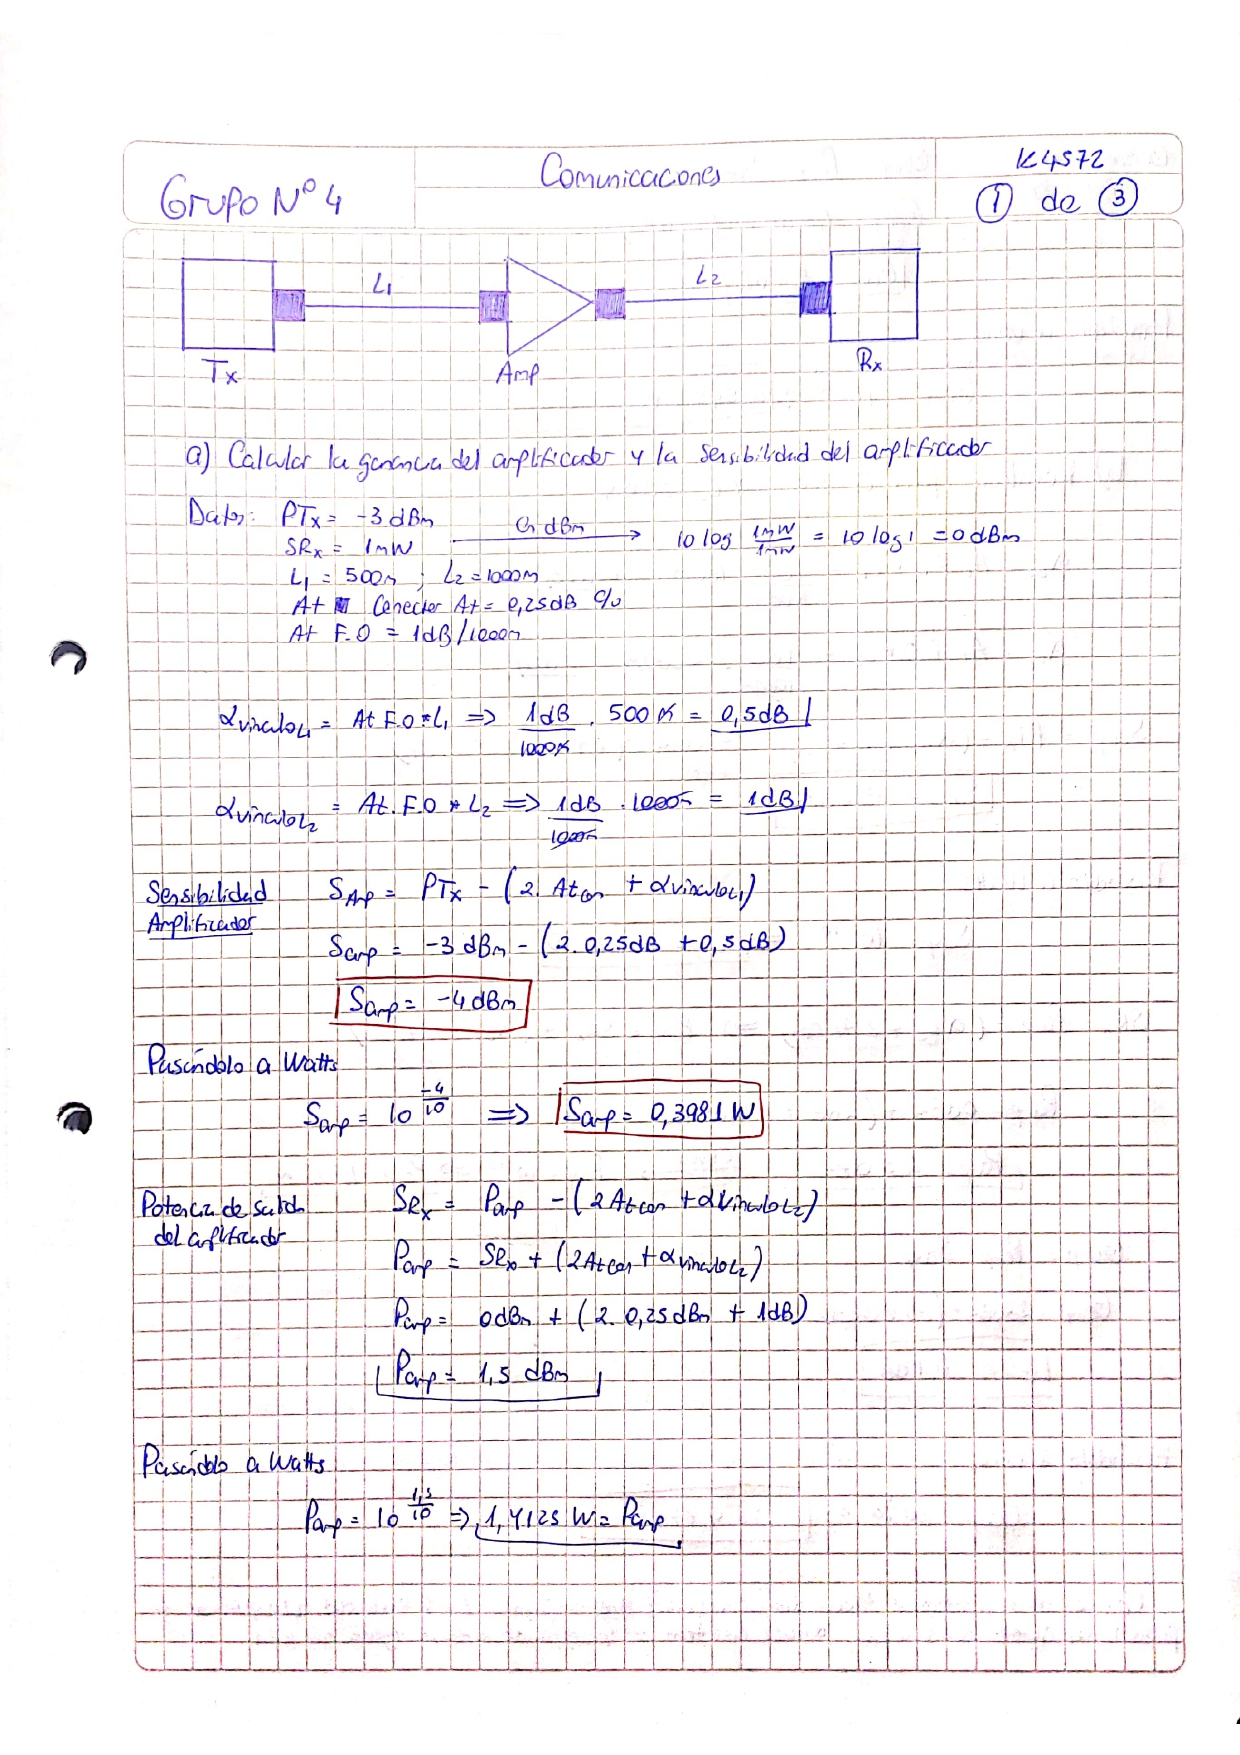 Grupo Nº 4
Comunicaciones
K4572
1 de 3
L1
L2
Tx
Amp
Rx
a) Calcular la ganancia del amplificador y la sensibilidad del amplificador
Datos: PTx = -3 dBm
SRx = 1mW en dBm → 10 log 1mW/1mW = 10 log 1 = 0 dBm
L1 = 500m ; L2 = 1000m
At Conector At = 0,25dB c/u
At F.O = 1dB/1000m
αvinculoL1 = At F.O * L1 => 1dB/1000m . 500 m = 0,5dB
αvinculoL2 = At. F.O * L2 => 1dB/1000m . 1000m = 1dB
Sensibilidad Amplificador
SAmp = PTx - (2. Atcon + αvinculoL1)
Samp = -3 dBm - (2. 0,25dB + 0,5dB)
Samp = -4 dBm
Pasándolo a Watts
Samp = 10^(-4/10) => Samp = 0,3981 W
Potencia de salida del amplificador
SRx = Pamp - (2 Atcon + αVinculoL2)
Pamp = SRx + (2Atcon + αvinculoL2)
Pamp = 0dBm + (2. 0,25dBm + 1dB)
Pamp = 1,5 dBm
Pasándolo a Watts
Pamp = 10^(1,5/10) => 1,4125 W = Pamp